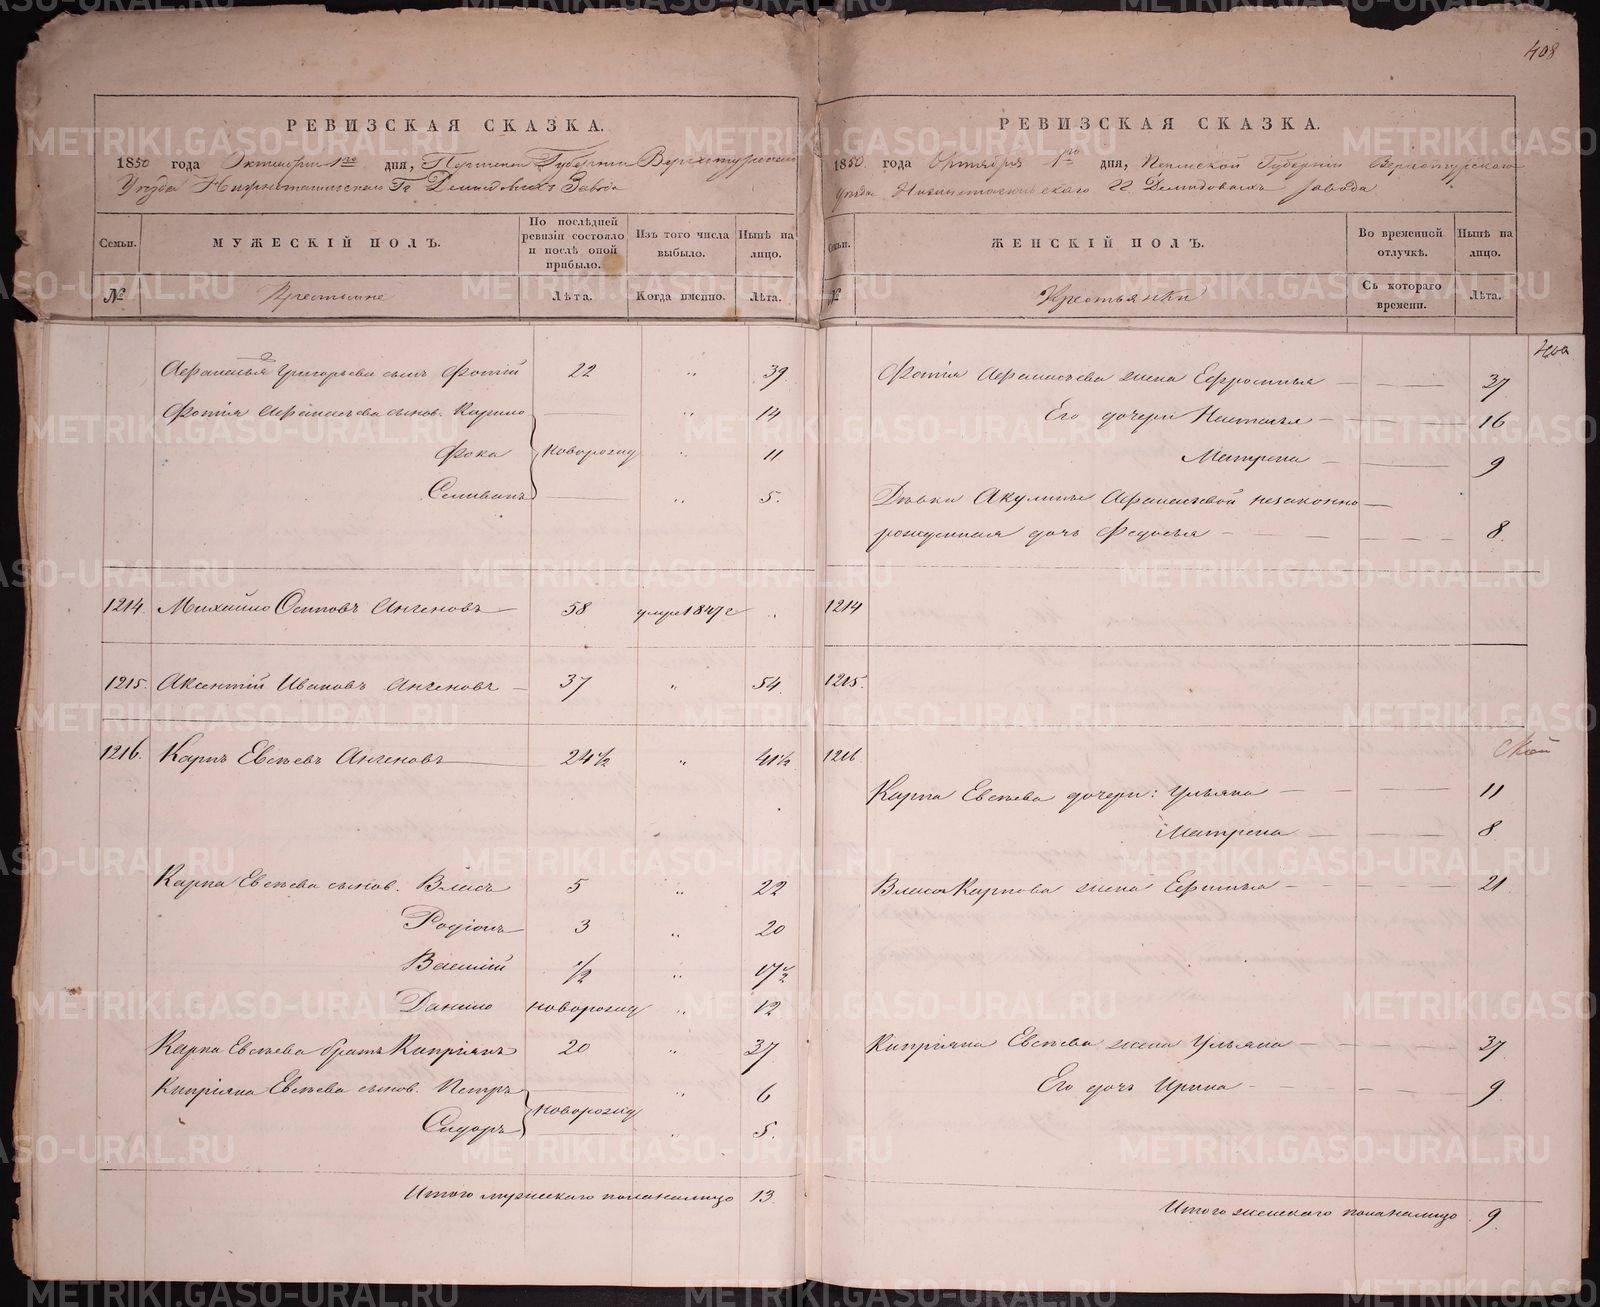 408
РЕВИЗСКАЯ СКАЗКА.
1850 года Октября 1го дня, Пермской Губернии Верхотурскаго
Уезда Нижнетагильскаго Гг Демидовыхъ Завода
Семьи.
МУЖЕСКІЙ ПОЛЪ.
По послѣдней ревизіи состояло и послѣ оной прибыло.
Изъ того числа выбыло.
Нынѣ на лицо.
№
Крестьяне
Лѣта.
Когда именно.
Лѣта.
Афанасья Григорьева сынъ Фотій 22 " 39
Фотія Афанасьева сынов. Карило — " 14
Фока новорожд " 11
Селиванъ — " 5.
1214. Михайло Осиповъ Ангеновъ — 58 умре 1847 г "
1215. Аксентій Ивановъ Ангеновъ — 37 " 54.
1216. Карпъ Евсѣевъ Ангеновъ — 24 1/2 " 41 1/2
Карпа Евсѣева сынов. Власъ 5 " 22
Родіонъ 3 " 20
Василій 1/2 " 17 1/2
Данило новорожд " 12
Карпа Евсѣева братъ Кипріянъ 20 " 37
Кипріяна Евсѣева сынов. Петръ — " 6
новорожд
Сидоръ — " 5.
Итого мужескаго пола налицо 13
РЕВИЗСКАЯ СКАЗКА.
1850 года Октября 1го дня, Пермской Губерніи Верхотурскаго
уѣзда Нижнетагильскаго Гг. Демидовыхъ завода
Семьи.
ЖЕНСКІЙ ПОЛЪ.
Во временной отлучкѣ.
Нынѣ на лицо.
№
Крестьянки
Съ котораго времени.
Лѣта.
Фотія Афанасьева жена Ефросинья — — — 37
Его дочери Настасья — — 16
Матрена — — 9
Дѣвки Акулины Афанасьевой незаконно —
рожденная дочь Федосья — — — — 8
1214
1215.
1216
Карпа Евсѣева дочери: Ульяна — — — 11
Матрена — — — 8
Власа Карпова жена Ефимья — — — 21
Кипріяна Евсѣева жена Ульяна — — — 37
Его дочь Ирина — — — 9
Итого женскаго пола налицо 9
METRIKI.GASO-URAL.RU